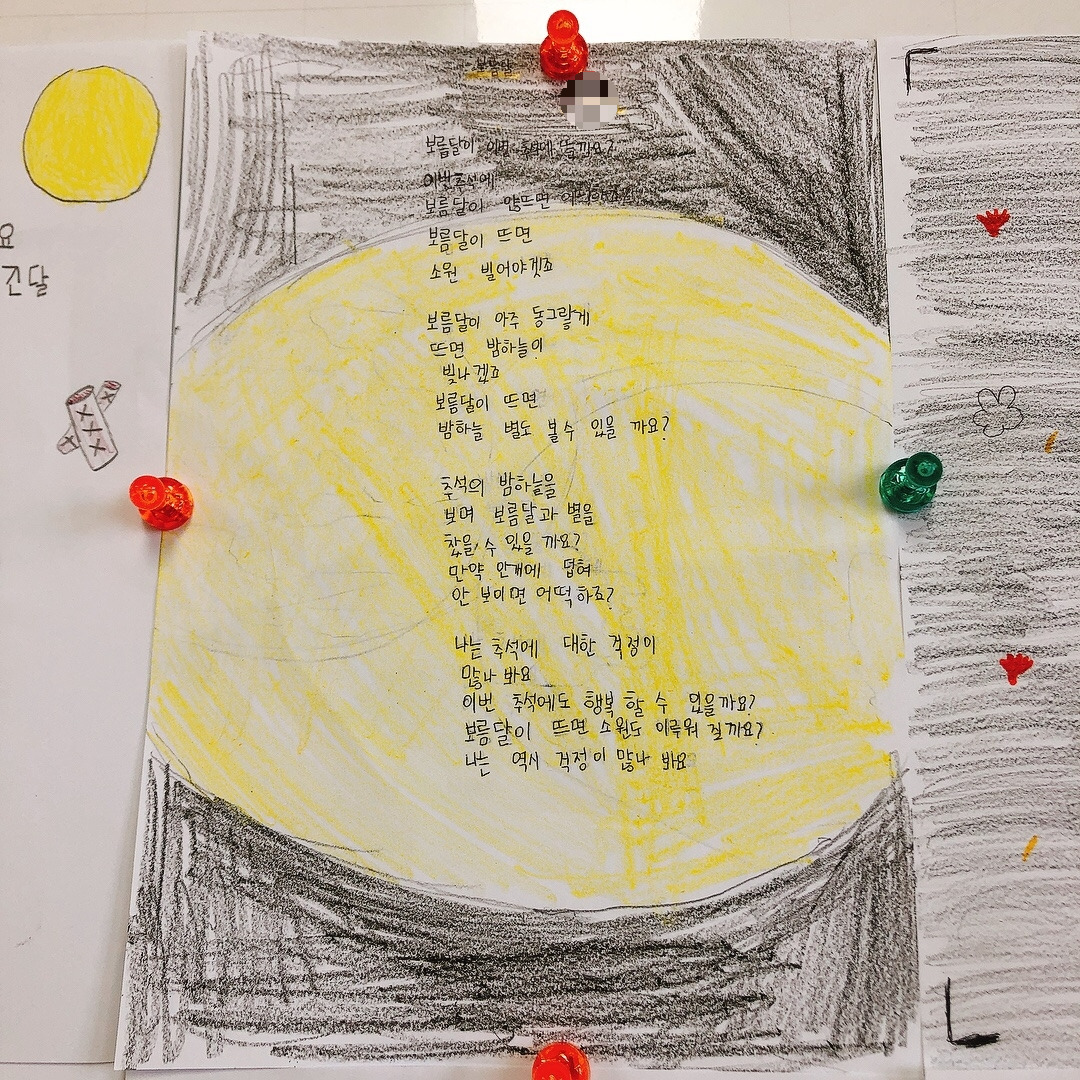 요
긴달
보름달
보름달이 이번 추석에 뜰까요?
이번추석에
보름달이 안뜨면
보름달이 뜨면
소원 빌어야겟죠
보름달이 아주 동그랗게
뜨면 밤하늘이
빛나겠죠
보름달이 뜨면
밤하늘 별도 볼수 있을 까요?
추석의 밤하늘을
보며 보름달과 별을
찾을 수 있을 까요?
만약 안개에 덥혀
안 보이면 어떡하죠?
나는 추석에 대한 걱정이
많나 봐요
이번 추석에도 행복 할 수 있을까요?
보름달이 뜨면 소원도 이루워 질까요?
나는 역시 걱정이 많나 봐요